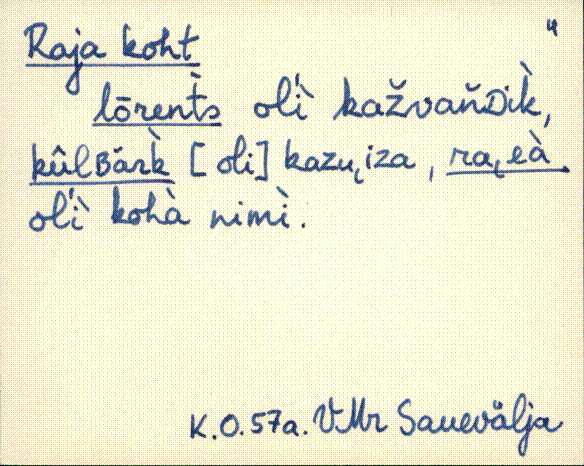 Raja koht "
lōrent̀s olì kažvaǹᴅìk̀,
kûlʙäŕk̀ [olì] kazu̯iza, ra̯eà
olì kohà nimì.
K.O.57a. VMr Sauevälja